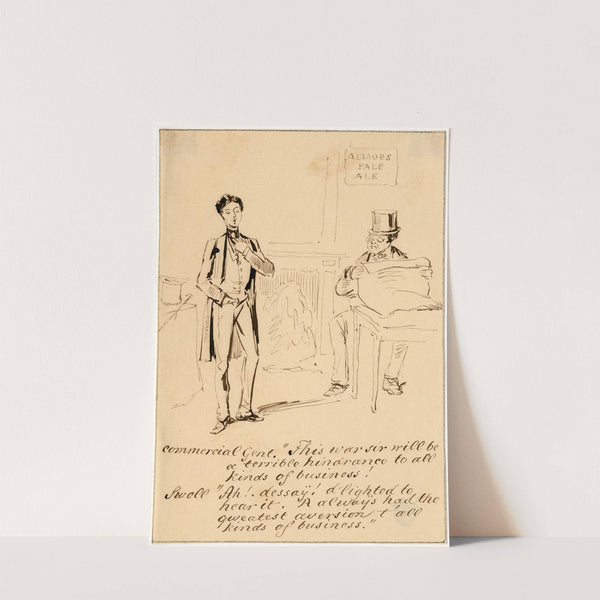 ALLSOPS
PALE
ALE
Commercial Gent. "This war sir will be
a terrible hindrance to all
kinds of business!
Swell "Ah! dessay! d'lighted to
hear it. A always had the
gweatest aversion t'all
kinds of business."